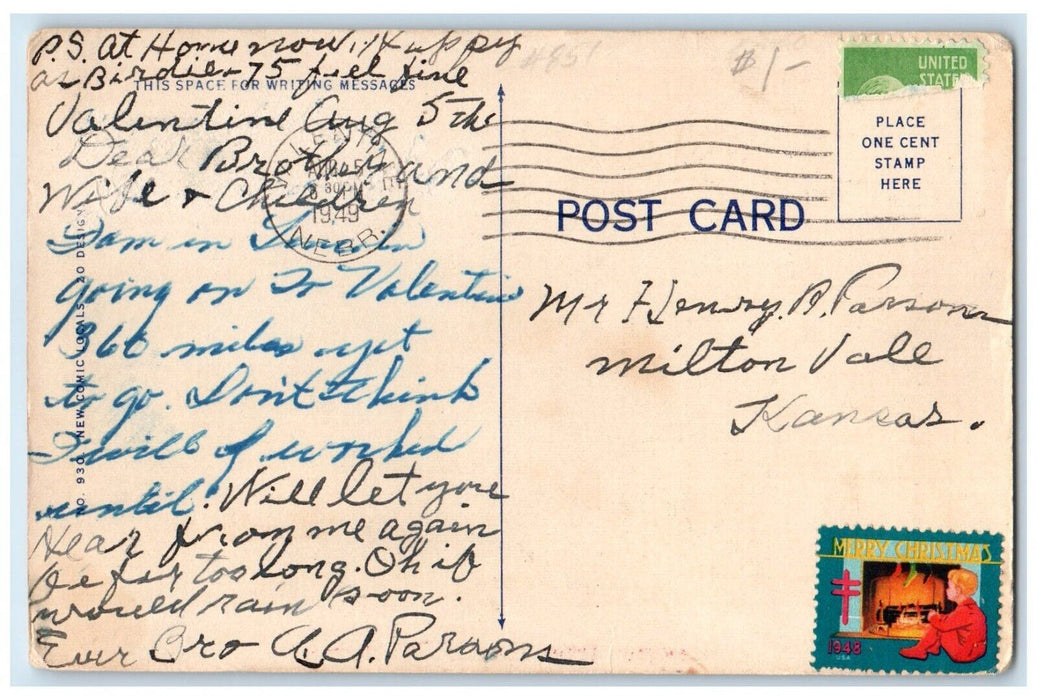 P.S. At Home now, Happy
as Birdie - 75 feel fine
THIS SPACE FOR WRITING MESSAGES
Valentine Aug 5 the
Dear Brother and
Wife & Children
I am in
going on To Valentine
366 miles yet
to go. Don't think
I will of worked
until. Will let you
Hear from me again
befor too long. Oh if
would rain soon.
Ever Bro A. A. Parsons
NO. 930, NEW COMIC LOCALS, 20 DESIGNS
1949
NEBR.
#851
$1-
UNITED
STATES
PLACE
ONE CENT
STAMP
HERE
POST CARD
Mr Henry. A. Parsons
Milton Vale
Kansas.
MERRY CHRISTMAS
1948
USA